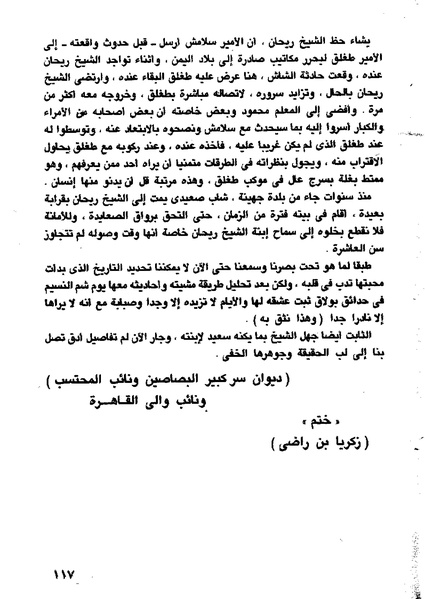 يشاء حظ الشيخ ريحان ، أن الأمير سلامش أرسل ـ قبل حدوث واقعته ـ إلى
الأمير طغلق ليحرر مكاتيب صادرة إلى بلاد اليمن ، وأثناء تواجد الشيخ ريحان
عنده ، وقعت حادثة الشاش ، هنا عرض عليه طغلق البقاء عنده ، وارتضى الشيخ
ريحان بالحال ، وتزايد سروره ، لاتصاله مباشرة بطغلق ، وخروجه معه أكثر من
مرة . وأفضى إلى المعلم محمود وبعض خاصته أن بعض أصحابه من الأمراء
والكبار أسروا إليه بما سيحدث مع سلامش ونصحوه بالابتعاد عنه ، وتوسطوا له
عند طغلق الذى لم يكن غريبا عليه ، فأخذه عنده ، وعند ركوبه مع طغلق يحاول
الأقتراب منه ، ويجول بنظراته فى الطرقات متمنيا أن يراه أحد ممن يعرفهم ، وهو
ممتط بغلة بسرج عال فى موكب طغلق ، وهذه مرتبة قل أن يدنو منها إنسان .
منذ سنوات جاء من بلدة جهينة ، شاب صعيدى يمت إلى الشيخ ريحان بقرابة
بعيدة ، أقام فى بيته فترة من الزمان ، حتى التحق برواق الصعايدة ، وللأمانة
فلا نقطع بخلوه إلى سماح إبنة الشيخ ريحان خاصة أنها وقت وصوله لم تتجاوز
سن العاشرة .
طبقا لما هو تحت بصرنا وسمعنا حتى الآن لا يمكننا تحديد التاريخ الذى بدأت
محبتها تدب فى قلبه ، ولكن بعد تحليل طريقة مشيته وأحاديثه معها يوم شم النسيم
فى حدائق بولاق ثبت عشقه لها والأيام لا تزيده إلا وجدا وصبابة مع أنه لا يراها
إلا نادرا جدا ( وهذا نثق به ) .
الثابت أيضا جهل الشيخ بما يكنه سعيد لإبنته ، وجار الآن لم تفاصيل أدق تصل
بنا إلى لب الحقيقة وجوهرها الخفى .
( ديوان سر كبير البصاصين ونائب المحتسب )
ونائب والى القاهرة
« ختم »
( زكريا بن راضى )
١١٧